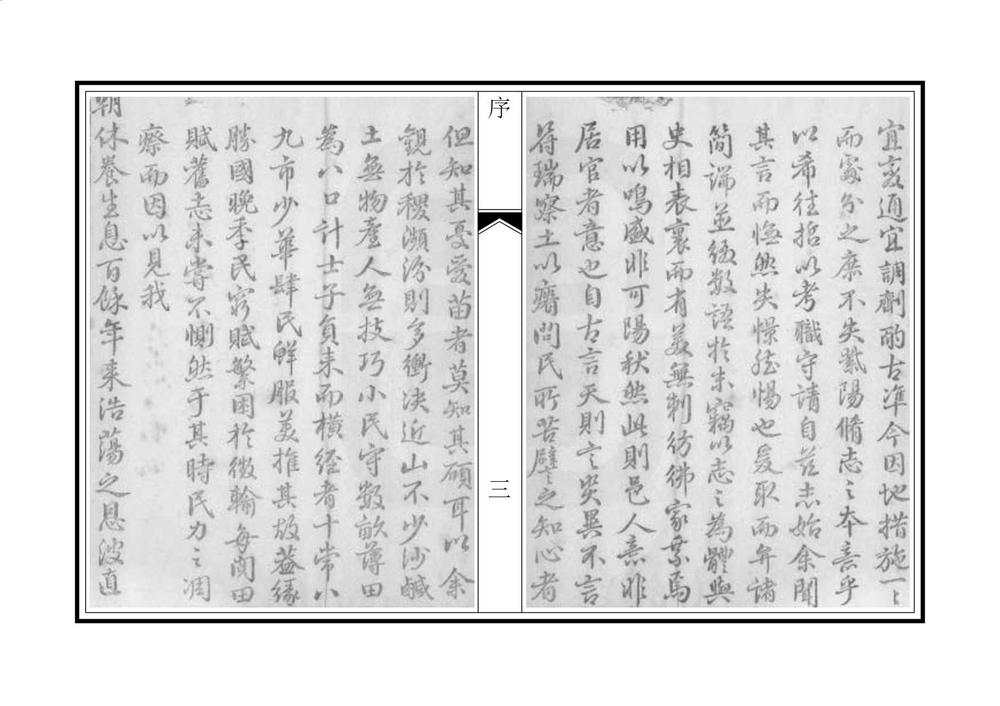 宜変通宜調劑酌古準今因地措施一一
而處分之庶不失紫陽脩志之本意乎
以希往哲以考職守請自茲志始余聞
其言而憮然失憬然惕也爰取而弁諸
簡端並綴數語於末竊以志之為體與
史相表裏而有美無刺彷彿家乘焉
用以鳴盛非可陽秋然此則邑人意非
居官者意也自古言天則言災異不言
符瑞察土以瘠問民所苦譬之知心者
序
三
但知其憂愛苗者莫知其碩耳以余
觀於稷瀕汾則多衝決近山不少沙鹹
土無物產人無技巧小民守數畝薄田
為八口計士子負耒而橫經者十常八
九市少華肆民鮮服美推其故蓋緣
勝國晚季民窮賦繁困於徵輸每閱田
賦舊志未嘗不惻然于其時民力之凋
瘵而因以見我
朝休養生息百餘年來浩蕩之恩波直